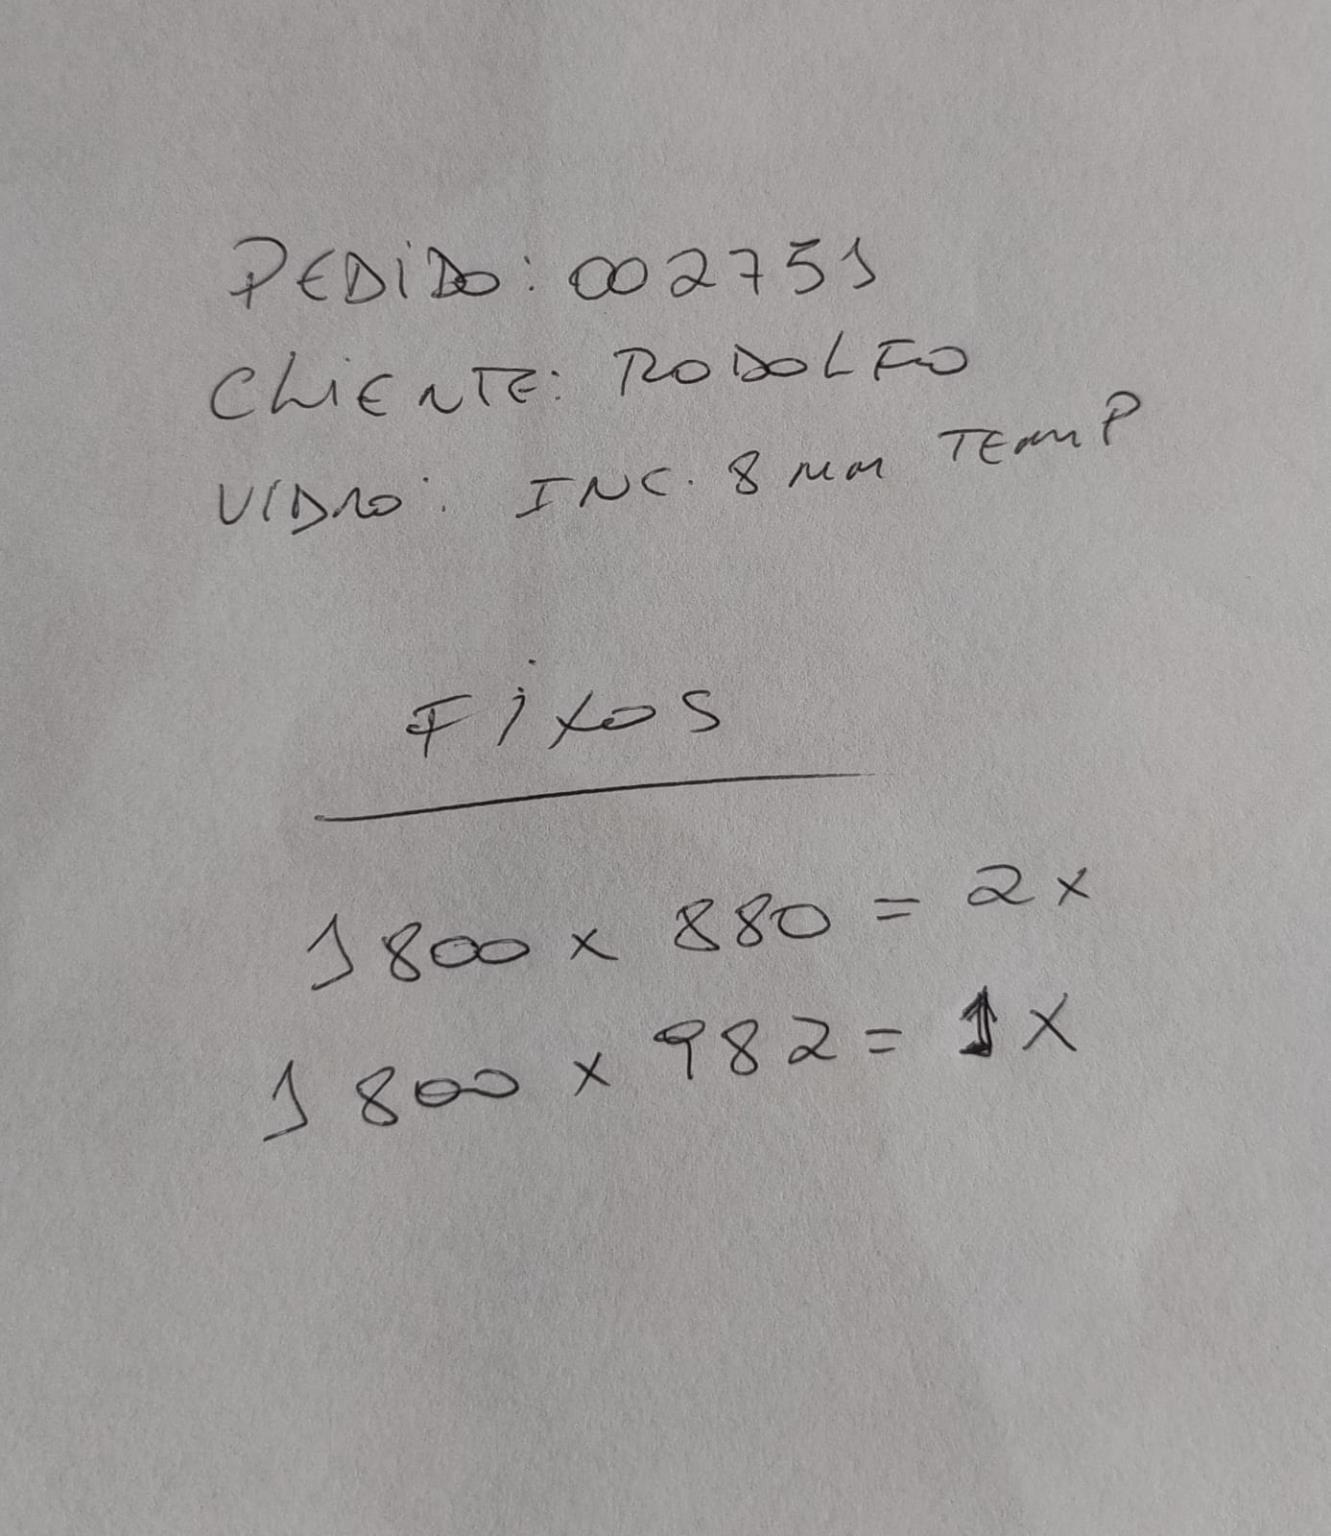 PEDIDO: 002751
CLIENTE: RODOLFO
VIDRO: INC. 8 MM TEMP
FIXOS
1800 x 880 = 2x
1800 x 982 = 1x